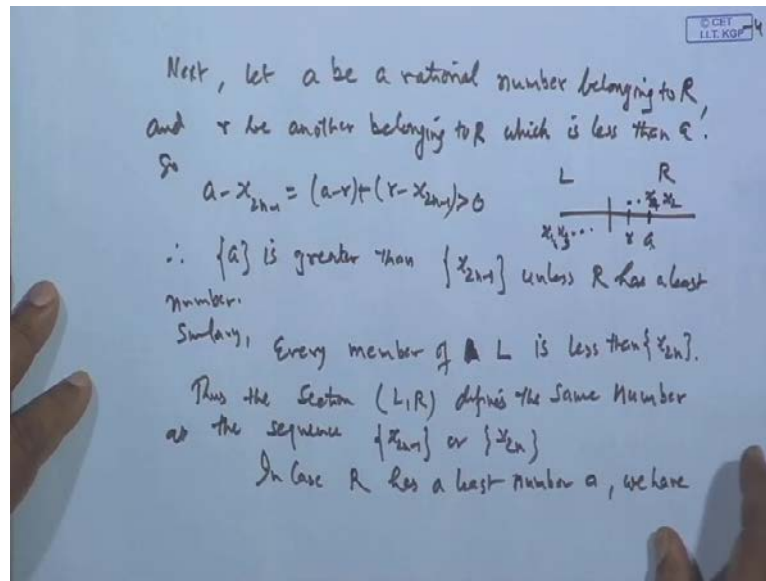 © CET
I.I.T. KGP
-4
Next, let a be a rational number belonging to R,
and r be another belonging to R which is less than a.
So
a - x_{2n-1} = (a-r)+(r-x_{2n-1})>0
L R
x_1 x_3 ... r a .. x_4 x_2
∴ {a} is greater than {x_{2n-1}} unless R has a least
number.
Similarly, Every member of L is less than {x_{2n}}.
Thus the Section (L,R) defines the same number
as the sequence {x_{2n-1}} or {x_{2n}}
In case R has a least number a, we have